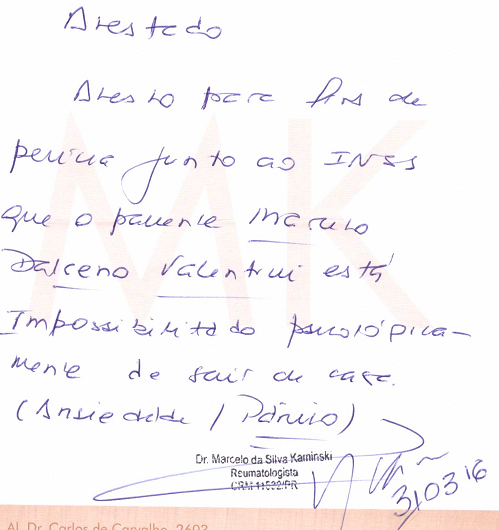 Atestado
Atesto para fins de
perícia junto ao INSS
que o paciente Marcelo
Dalceno Valentrui está
Impossibilitado psicológica-
mente de sair de casa.
(Ansiedade / Pânico)
Dr. Marcelo da Silva Kaminski
Reumatologista
CRM 11582/PR
31 03 16
Al. Dr. Carlos de Carvalho, 2603